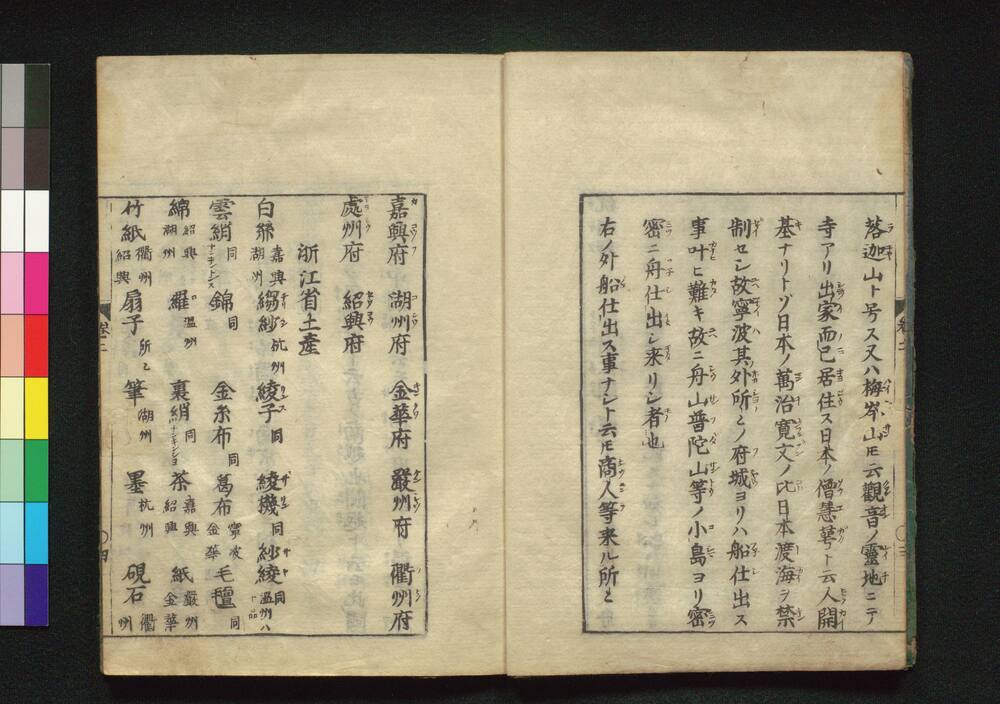 落迦山ト号ス又ハ梅岑山𪜈云觀音ノ靈地ニテ
寺アリ出家而已居住ス日本ノ僧慧萼ト云人開
基ナリトゾ日本ノ萬治寛文ノ比日本渡海ヲ禁
制セシ故寧波其外所〻ノ府城ヨリハ船仕出ス
事叶ヒ難キ故ニ舟山普陀山等ノ小島ヨリ密
密ニ舟仕出シ来リシ者也
右ノ外船仕出ス事ナシト云𪜈商人等来ル所〻
卷二
三
嘉興府 湖州府 金華府 嚴州府 衢州府
處州府 紹興府
浙江省土産
白糸 嘉興 湖州 縐紗 杭州 綾子 同 綾機 同 紗綾 同 温州ハ下品
雲絹 同 錦 同 金糸布 同 葛布 寧波 金華 毛氊 同
綿 紹興 湖州 羅 温州 裏絹 同 茶 嘉興 紹興 紙 嚴州 金華
竹紙 衢州 紹興 扇子 所〻 筆 湖州 墨 杭州 硯石 衢州
卷二
四